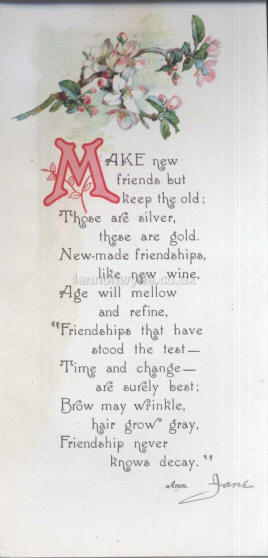 MAKE new
friends but
keep the old;
Those are silver,
these are gold.
New-made friendships,
like new wine,
Age will mellow
and refine,
"Friendships that have
stood the test—
Time and change—
are surely best;
Brow may wrinkle,
hair grow gray,
Friendship never
knows decay."
Anon. Jane